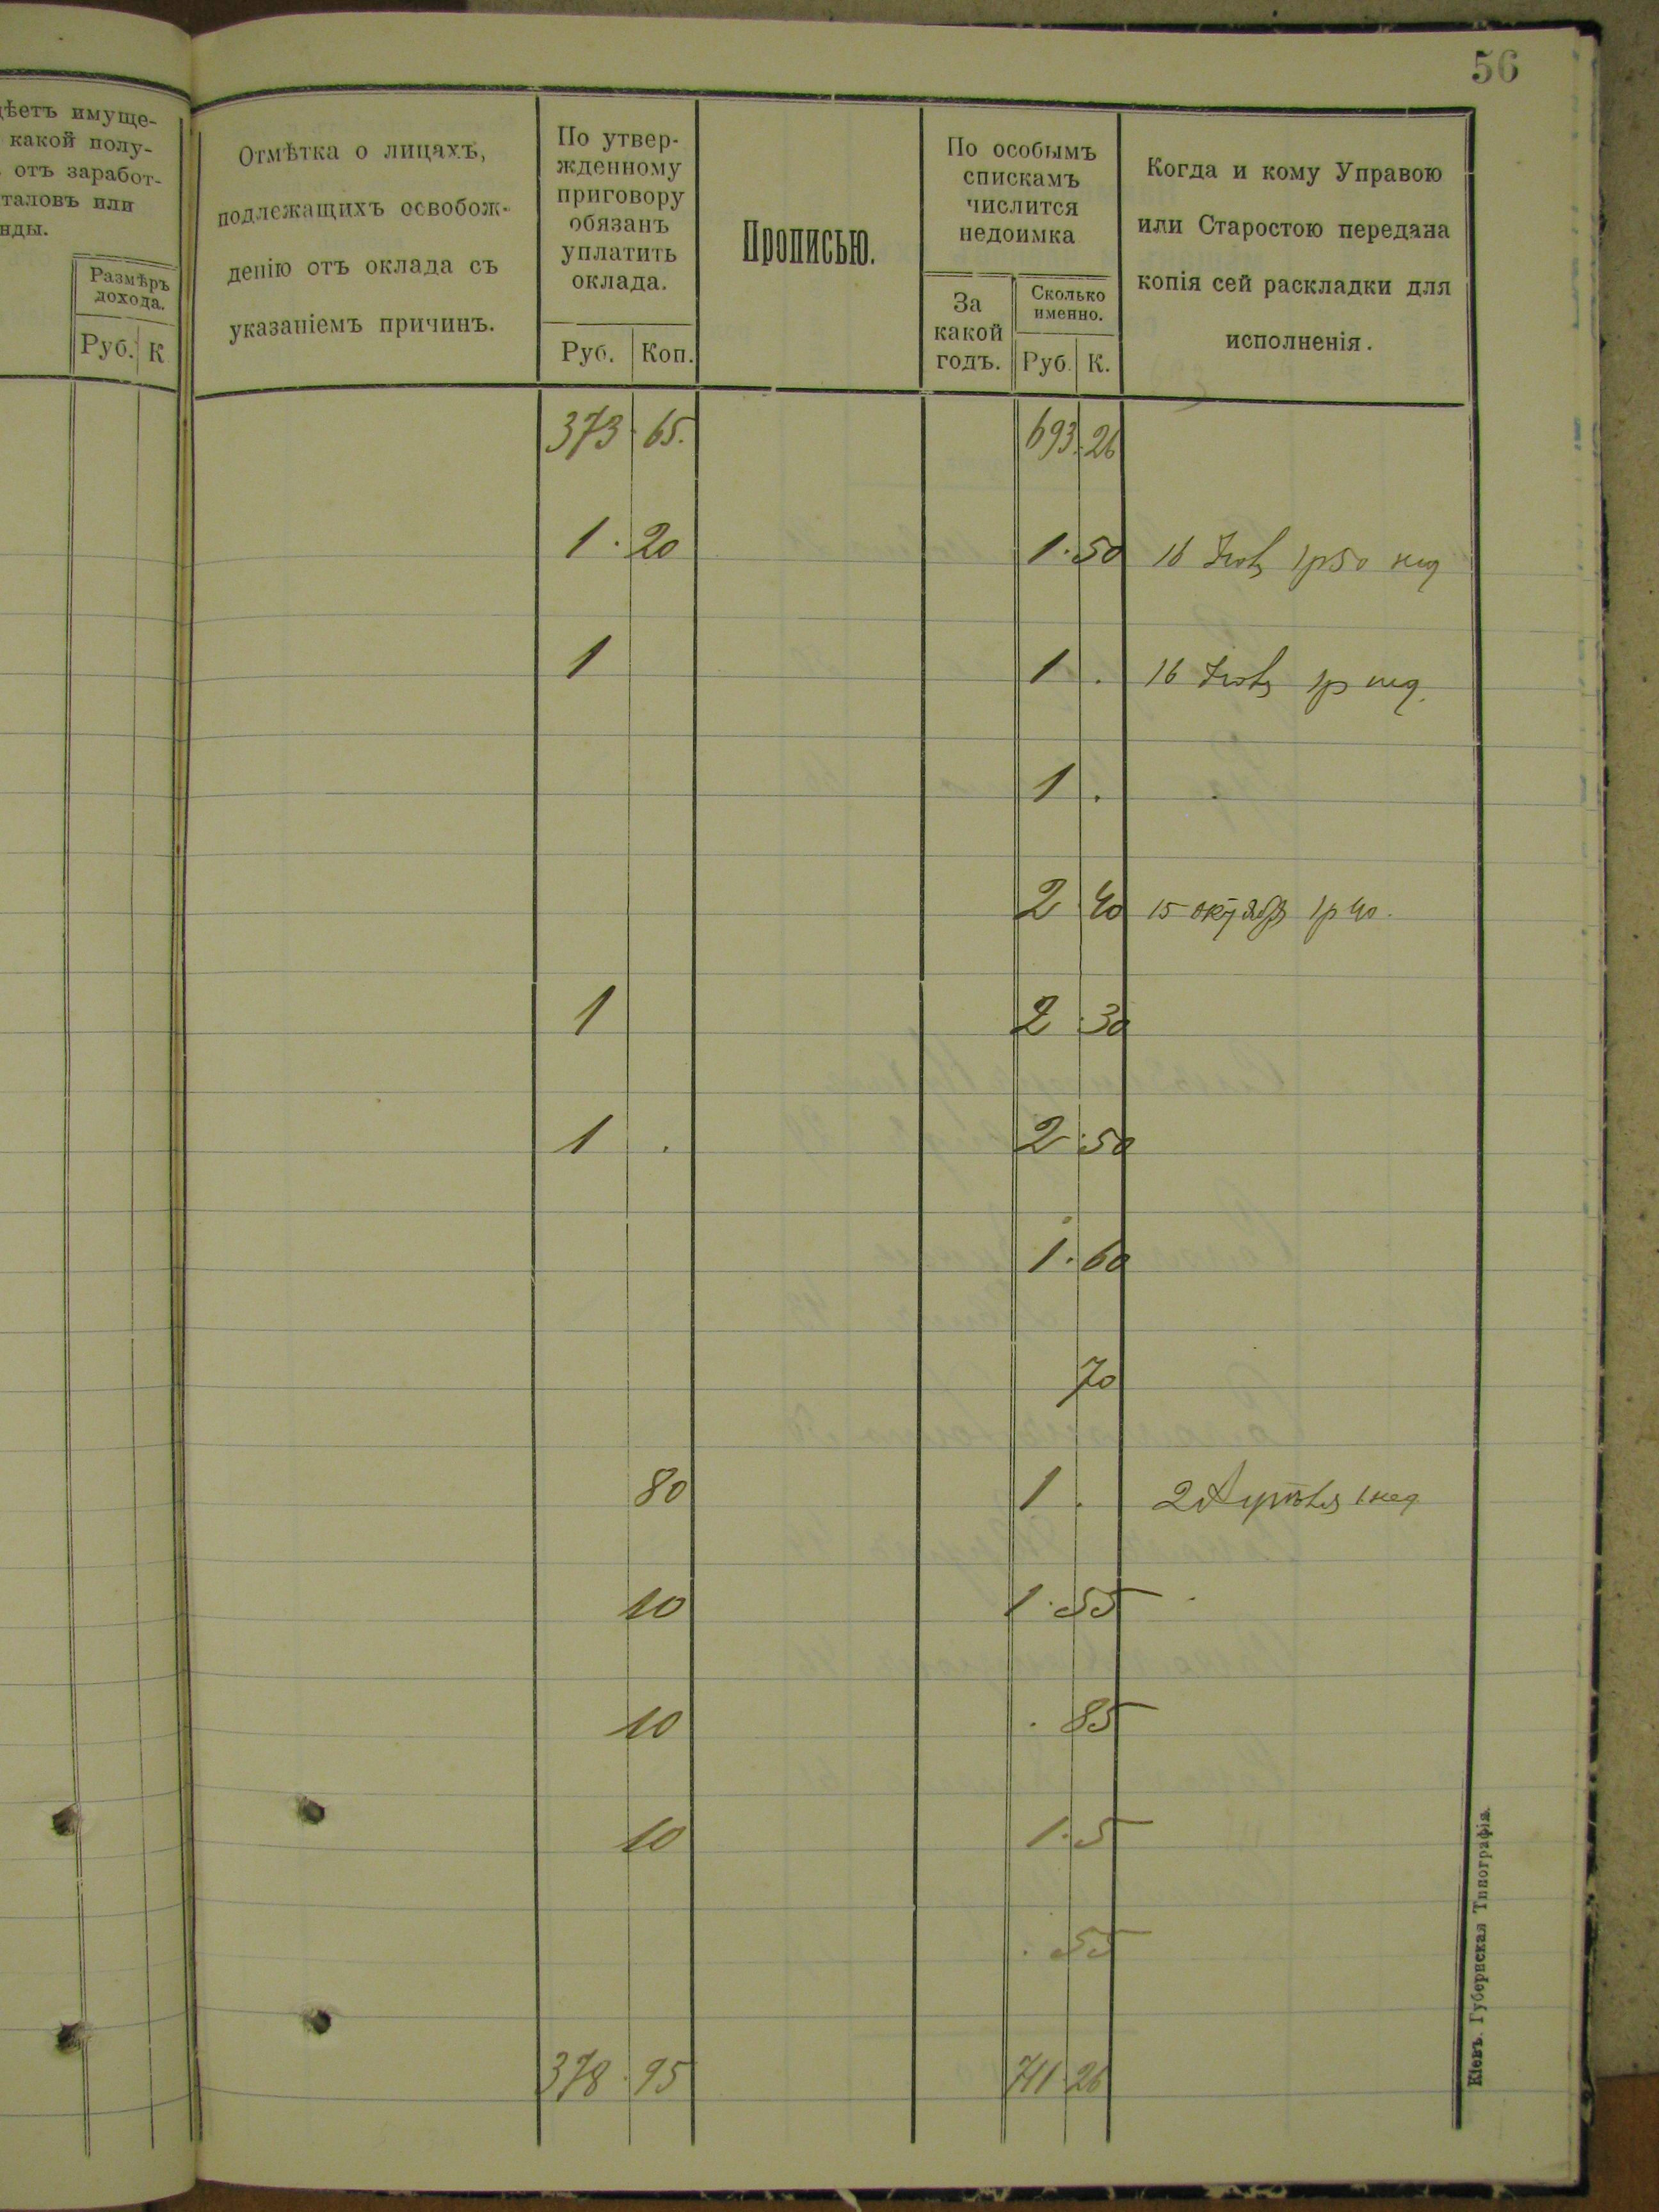 56
дѣетъ имуще-
какой полу-
отъ заработ-
таловъ или
нды.
Размѣръ
дохода.
Руб. К
Отмѣтка о лицахъ,
подлежащихъ освобож-
денію отъ оклада съ
указаніемъ причинъ.
По утвер-
жденному
приговору
обязанъ
уплатить
оклада.
Руб. Коп.
Прописью.
По особымъ
спискамъ
числится
недоимка
За
какой
годъ.
Сколько
именно.
Руб. К.
Когда и кому Управою
или Старостою передана
копія сей раскладки для
исполненія.
373 65. 693.26
1.20 1.50 16 1р50 нед
1 1 . 16 1р нед.
1 .
2 40 15 октября 1р 40.
1 2.30
1 . 2.50
1.60
70
80 1 . 2 1 нед
10 1.55
10 . 85
10 1.5
. 55
378.95 711.26
Кіевъ. Губернская Типографія.